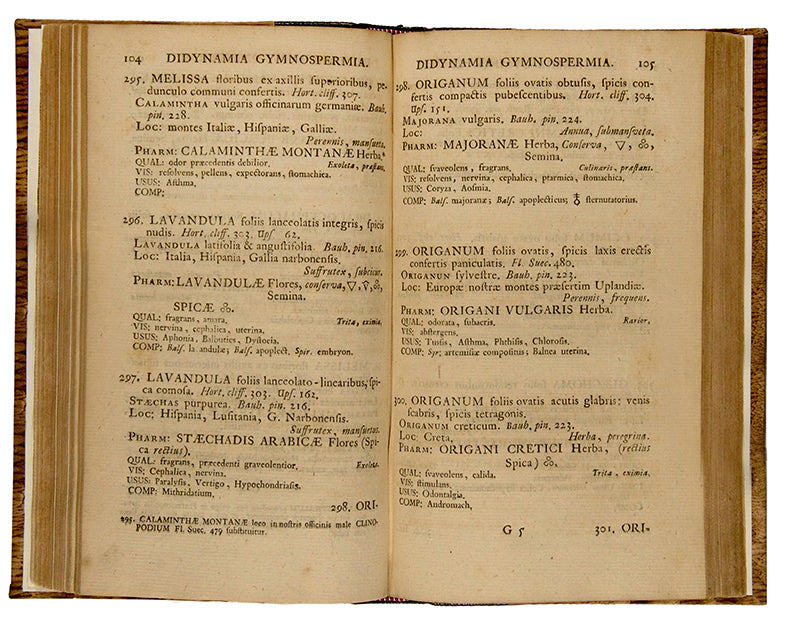 104 DIDYNAMIA GYMNOSPERMIA.
295. MELISSA floribus ex axillis superioribus, pe-
dunculo communi confertis. Hort. cliff. 307.
CALAMINTHA vulgaris officinarum germaniæ. Bauh.
pin. 228.
Loc: montes Italiæ, Hispaniæ, Galliæ.
Perennis, mansueta.
PHARM: CALAMINTHÆ MONTANÆ Herba.*
QUAL: odor præcedentis debilior. Exoleta, præstans.
VIS: resolvens, pellens, expectorans, stomachica.
USUS: Asthma.
COMP:
296. LAVANDULA foliis lanceolatis integris, spicis
nudis. Hort. cliff. 303. Ups. 62.
LAVANDULA latifolia & angustifolia. Bauh. pin. 216.
Loc: Italia, Hispania, Gallia narbonensis.
Suffrutex,
PHARM: LAVANDULÆ Flores, conserva, ▽,
Semina.
SPICÆ
QUAL: fragrans, amara. Trita, eximia.
VIS: nervina, cephalica, uterina.
USUS: Aphonia, Balbuties, Dystocia.
COMP: Bals. la andulæ; Bals. apoplect. Spir. embryon.
297. LAVANDULA foliis lanceolato-linearibus, spi-
ca comosa. Hort. cliff. 303. Ups. 162.
STÆCHAS purpurea. Bauh. pin. 216.
Loc: Hispania, Lusitania, G. Narbonensis.
Suffrutex, mansuetus.
PHARM: STÆCHADIS ARABICÆ Flores (Spi-
ca rectius).
QUAL: fragrans, præcedenti graveolentior. Exoleta.
VIS: Cephalica, nervina.
USUS: Paralysis, Vertigo, Hypochondriasis.
COMP: Mithridatium.
298. ORI-
295. CALAMINTHÆ MONTANÆ loco in nostris officinis male CLINO-
PODIUM Fl. Suec. 479 substituitur.
DIDYNAMIA GYMNOSPERMIA. 105
298. ORIGANUM foliis ovatis obtusis, spicis con-
fertis compactis pubescentibus. Hort. cliff. 304.
Ups. 151.
MAJORANA vulgaris. Bauh. pin. 224.
Loc: Annua, submansveta.
PHARM: MAJORANÆ Herba, Conserva, ▽,
Semina.
QUAL: svaveolens, fragrans. Culinaris, præstans.
VIS: resolvens, nervina, cephalica, ptarmica, stomachica.
USUS: Coryza, Aosmia.
COMP: Bals. majoranæ; Bals. apoplecticus; ♁ sternutatorius.
299. ORIGANUM foliis ovatis, spicis laxis erectis
confertis paniculatis. Fl. Suec. 480.
ORIGANUN sylvestre. Bauh. pin. 223.
Loc: Europæ nostræ montes præsertim Uplandiæ.
Perennis, frequens.
PHARM: ORIGANI VULGARIS Herba.
QUAL: odorata, subacris. Rarior.
VIS: abstergens.
USUS: Tussis, Asthma, Phthisis, Chlorosis.
COMP: Syr: artemisiæ compositus; Balnea uterina.
300. ORIGANUM foliis ovatis acutis glabris: venis
scabris, spicis tetragonis.
ORIGANUM creticum. Bauh. pin. 223.
Loc: Creta. Herba, peregrina.
PHARM: ORIGANI CRETICI Herba, (rectius
Spica)
QUAL: svaveolens, calida. Trita, eximia.
VIS: stimulans.
USUS: Odontalgia.
COMP: Andromach,
G 5 301. ORI-